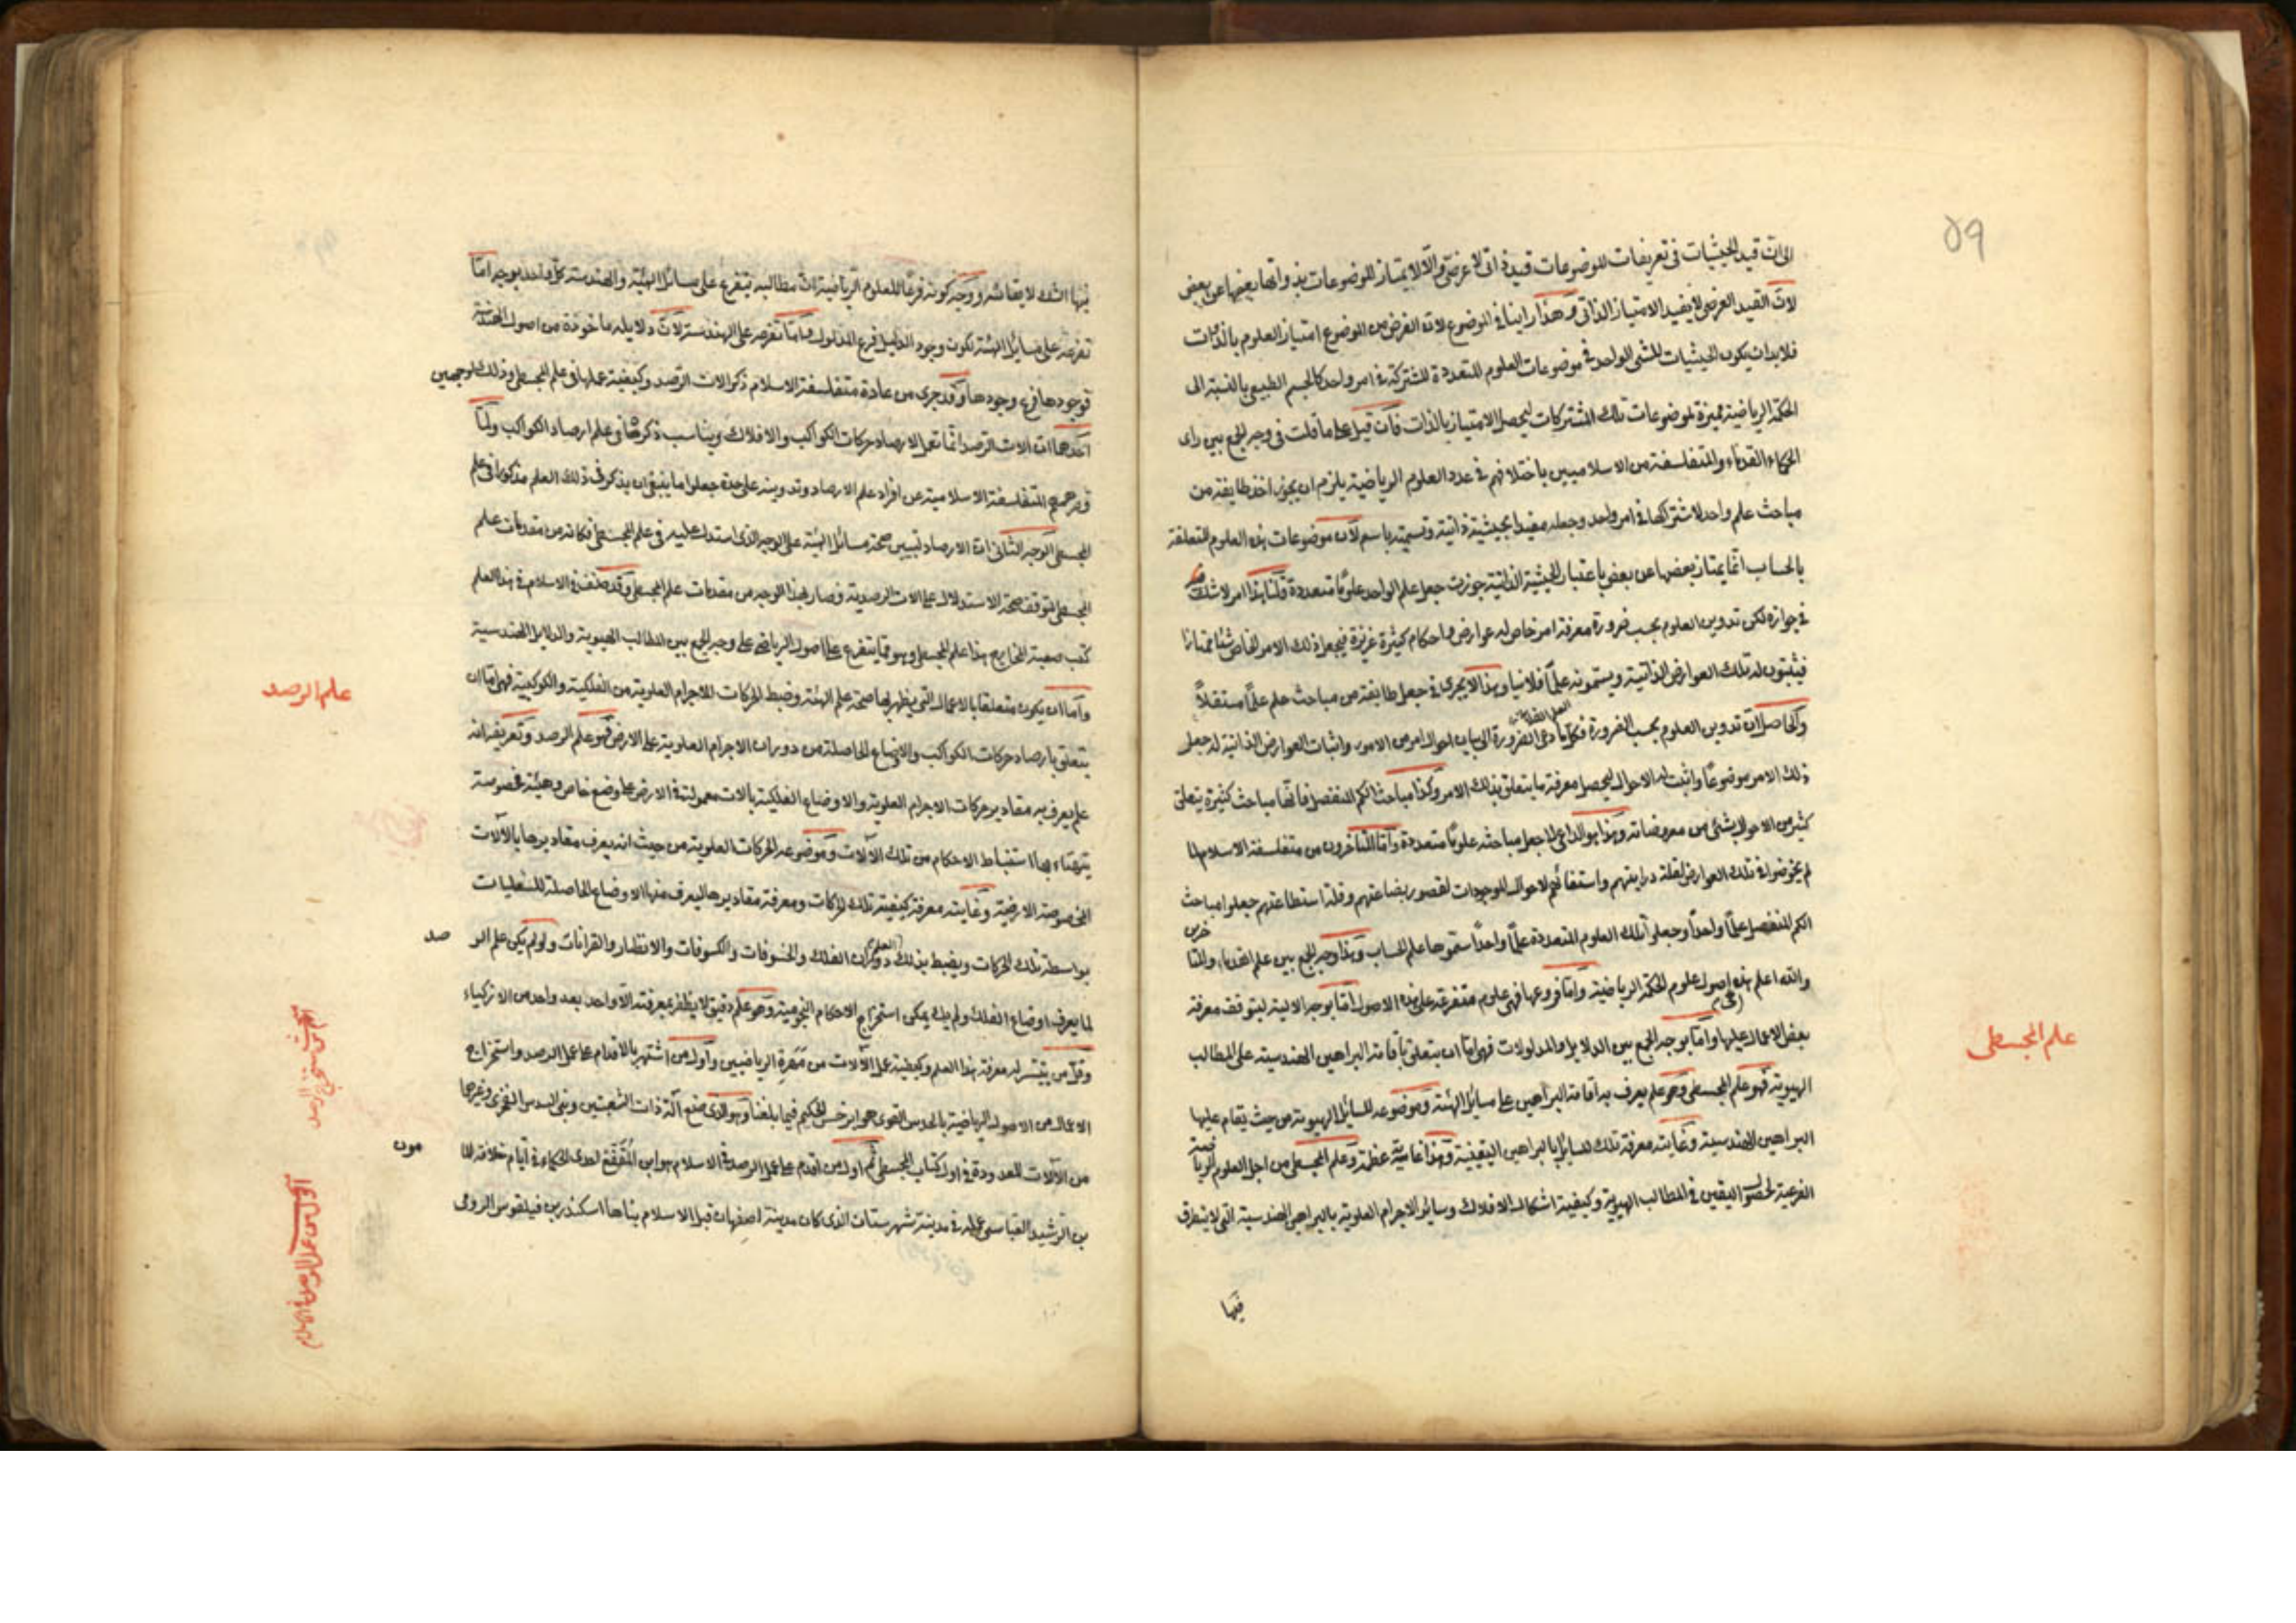 ٥٩
الى ان قيد الحيثيات فى تعريفات الموضوعات قيد ذاتى لا عرضى والا لا يمتاز الموضوعات بذواتها بعضها عن بعض
لان القيد العرضى لا يفيد الامتياز الذاتى وهذا راينا فى الموضوع لان الغرض من الموضوع امتياز العلوم بالذات
فلا بد ان يكون الحيثيات للشئ الواحد فى موضوعات العلوم المتعددة المشتركة فى امر واحد كالجسم الطبيعى بالنسبة الى
الحكمة الرياضية مميزة لموضوعات تلك المشتركات ليحصل الامتياز بالذات فان قيل على ما قلت فى وجه الجمع بين راى
الحكماء القدماء والمتفلسفة من الاسلاميين باختلافهم فى عدد العلوم الرياضية يلزم ان يجوز اخذ طايفة من
مباحث علم واحد لاشتراكها فى امر واحد وجعله مقيدا بحيثية ذاتية وتسميته باسم لان موضوعات هذه العلوم المتعلقة
بالحساب انما يمتاز بعضها عن بعض باعتبار الحيثية الذاتية جوزت جعل علم الواحد علوما متعددة قلنا هذا امر لا شك
فى جوازه لكن تدوين العلوم بحسب ضرورة معرفة امر خاص له عوارض واحكام كثيرة غزيرة فيجعل ذلك الامر الخاص شئا ممتازا
فيثبتون له تلك العوارض الذاتية ويسمونه علما فلانيا وهذا لا يجرى فى جعل طايفة من مباحث علم علما مستقلا
والحاصل ان تدوين العلوم بحسب الضرورة فكلما دعى الضرورة الى بيان احوال امر من الامور واثبات العوارض الذاتية له جعل
ذلك الامر موضوعا واثبت له الاحوال ليحصل معرفة ما يتعلق بذلك الامر وكذا مباحث الكم المنفصل فانها مباحث كثيرة يتعلق
كثير من الاحوال بشئ من معروضاته وهذا هو الداعى لما جعل مباحثه علوما متعددة واما المتاخرون من متفلسفة الاسلام لما
لم يخوضوا فى تلك العوارض لقلة درايتهم واستقائهم لاحوال الموجودات لقصور بضاعتهم وقلة استطاعتهم جعلوا مباحث
الكم المنفصل علما واحدا وجعلوا تلك العلوم المتعددة علما واحدا سموها علم الحساب وهذا وجه الجمع بين علم القدماء والمتا
خرين
والله اعلم هذه اصول علوم الحكمة الرياضية واما فروعها فهى علوم متفرعة على هذه الاصول اما بوجه الالية ليتوقف معرفة
بعض الاعمال عليها واما بوجه الجمع بين الدلايل والمدلولات فهى اما ان يتعلق باقامة البراهين الهندسية على المطالب
الهيوية فهو علم المجسطى وهو علم يعرف به اقامة البراهين على مسائل الهيئة وموضوعه المسائل الهيوية من حيث يقام عليها
البراهين الهندسية وغايته معرفة تلك المسائل بالبراهين اليقينية وهذا غاية عظمة وعلم المجسطى من اجل العلوم الريا
ضية
الفرعية لحصول اليقين فى المطالب الهيوية وكيفية اشكال الافلاك وسائر الاجرام العلوية بالبراهين الهندسية التى لا يتطرق
فيها
علم المجسطى
فيها الشك لا بقائه ووجه كونه فرعا للعلوم الرياضية ان مطالبه يتفرع على مسائل الهيئة والهندسة كل واحد بوجه اما
تفرعه على مسائل الهيئة لكون وجود الدليل فرع المدلول واما تفرعه على الهندسة لان دلايله ماخوذة من اصول الهندسة
فوجودها فرع وجودها وقد جرى من عادة متفلسفة الاسلام ذكر الات الرصد وكيفية عملها فى علم المجسطى وذلك لوجهين
احدهما ان الات الرصد انما تعمل لارصاد حركات الكواكب والافلاك ويناسب ذكرها فى علم ارصاد الكواكب ولما
المتفلسفة الاسلامية عن افراد علم الارصاد وتدوينه على حدة جعلوا ما ينبغى ان يذكر فى ذلك العلم مذكورا فى علم
المجسطى الوجه الثانى ان الارصاد تبيين صحة مسائل الهيئة على الوجه الذى استدل عليه فى علم المجسطى فكانه من مقدمات علم
المجسطى لتوقف صحة الاستدلال على الات الرصدية فصار بهذا الوجه من مقدمات علم المجسطى وقد صنف فى الاسلام فى هذا العلم
كتب صعبة المخارج هذا علم المجسطى وهو مما يتفرع على اصول الرياضى على وجه الجمع بين المطالب الهيوية والدلايل الهندسية
واما ان يكون متعلقا بالاعمال التى يظهر بها صحة علم الهيئة وضبط الحركات للاجرام العلوية من الفلكية والكوكبية فهى اما ان
يتعلق بارصاد حركات الكواكب والاوضاع الحاصلة من دوران الاجرام العلوية على الارض فهو علم الرصد وتعريفه انه
علم يعرف به مقادير حركات الاجرام العلوية والاوضاع الفلكية بالات معمولة فى الارض على وضع خاص وهيئة مخصوصة
يتهياء بها استنباط الاحكام من تلك الآلات وموضوعه الحركات العلوية من حيث انه يعرف مقاديرها بالآلات
المخصوصة الارضية وغايته معرفة كيفية تلك الحركات ومعرفة مقاديرها ليعرف منها الاوضاع الحاصلة للسفليات
بواسطة تلك الحركات ويضبط بذلك دوران الفلك والخسوفات والكسوفات والانظار والقرانات ولو لم يكن علم الر
صد
لما يعرف اوضاع الفلك ولم يك يمكن استخراج الاحكام النجومية وهو علم دقيق لا يظفر بمعرفته الا واحد بعد واحد من الازكياء
وقل من يتيسر له معرفة هذا العلم وكيفية عمل الآلات من مهرة الرياضيين واول من اشتهر بالاقدام على عمل الرصد واستخراج
الاعمال من الاصول الرياضية بالحدس القوى هو ابرخس الحكيم فيما بلغنا وهو الذى صنع آلة ذات الشعبتين وبنى السدس الفخرى وغيرها
من الآلات المعدودة فى اول كتاب المجسطى ثم اول من اقدم على عمل الرصد فى الاسلام هو ابن المقفع احدى الحكماء فى ايام خلافة الما
مون
بن الرشيد العباسى عمله فى مدينة شهرستان الذى كان مدينة اصفهان قبل الاسلام بناها اسكندر بن فيلقوس الرومى
علم الرصد
اول من عمل الرصد فى الاسلام